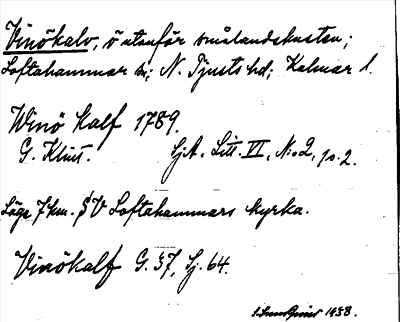 Vinökalv, ö utanför smålandskusten;
Loftahammar sn; N. Tjusts hd; Kalmar l.
Winö Kalf 1789.
G. Klint. SjA. Litt. VI, N:o 2, p. 2.
Läge 7 km. SV Loftahammars kyrka.
Vinökalf G. 37, Sj. 64.
1938.